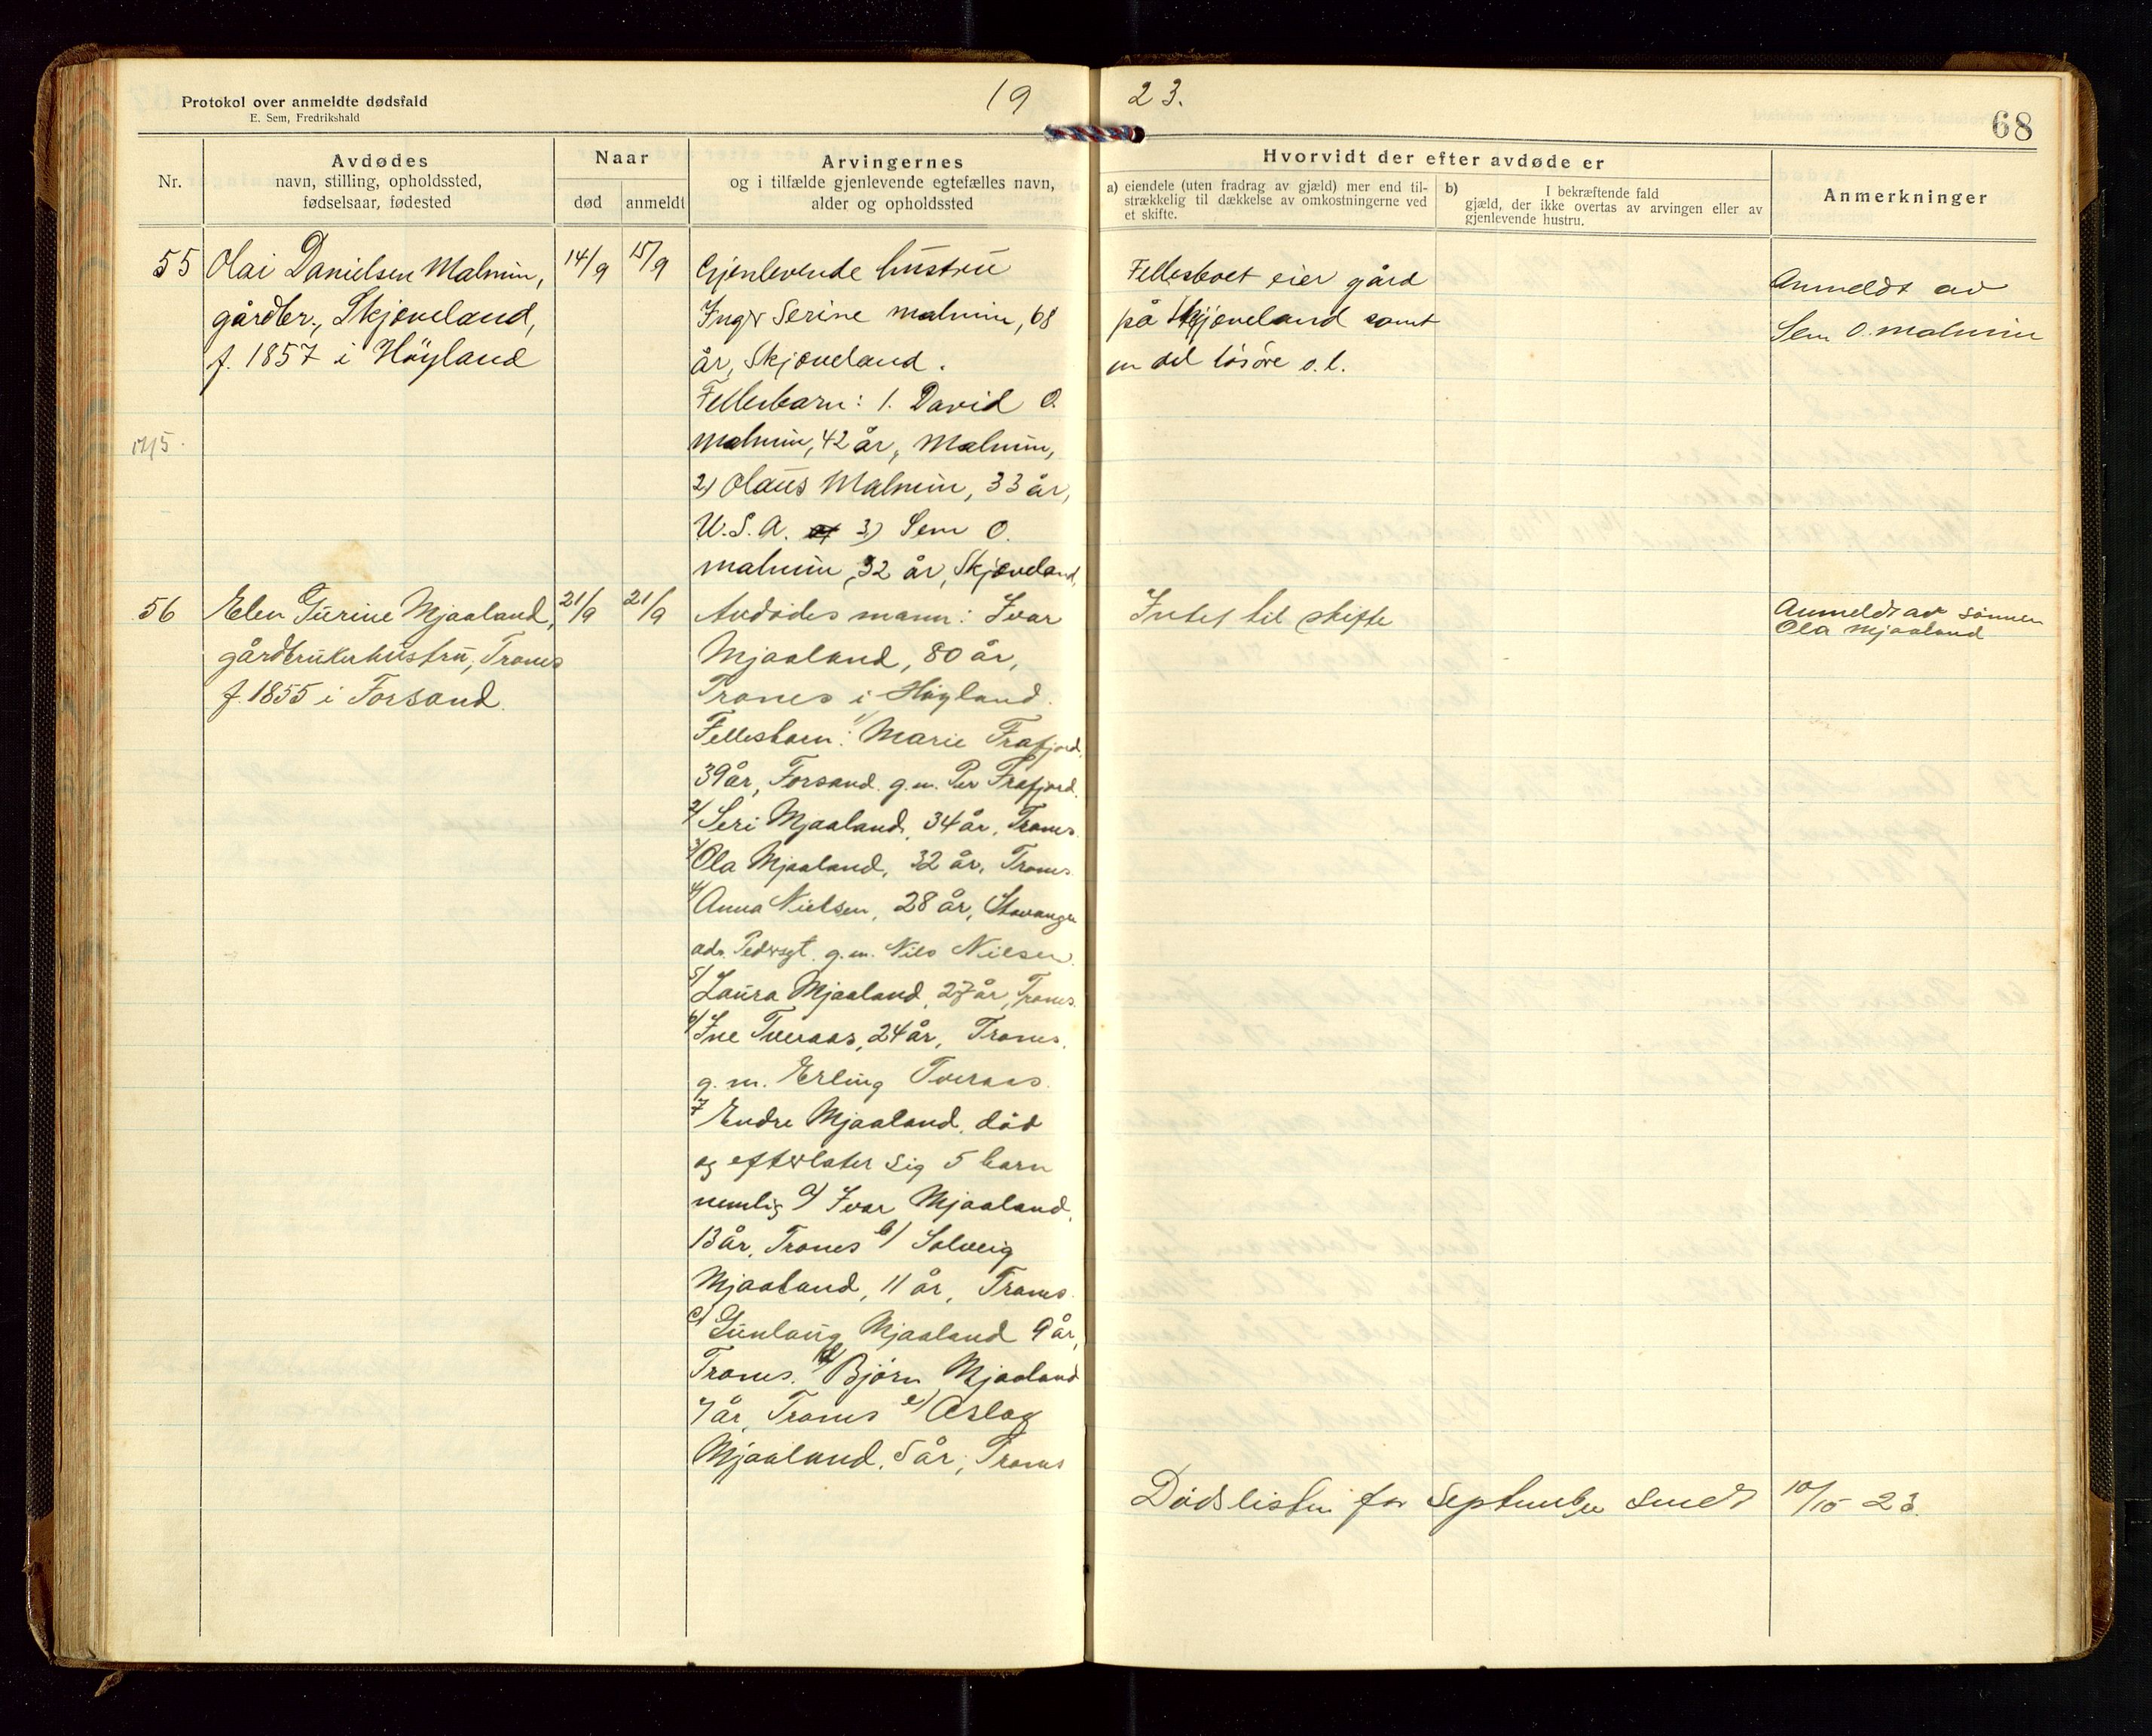 Protokol over anmeldte dødsfald
E. Sem, Fredrikshald
19 23.
68
Nr.
Avdødes
navn, stilling, opholdssted,
fødselsaar, fødested
Naar
død
anmeldt
Arvingernes
og i tilfælde gjenlevende egtefælles navn,
alder og opholdssted
Hvorvidt der efter avdøde er
a) eiendele (uten fradrag av gjæld) mer end til-
strækkelig til dækkelse av omkostningerne ved
et skifte.
b) I bekræftende fald
gjæld, der ikke overtas av arvingen eller av
gjenlevende hustru.
Anmerkninger
55
Olai Danielsen Malmin,
gårdbr., Skjæveland,
f. 1857 i Høyland
14/9
15/9
Gjenlevende hustru
Inger Serine Malmin, 68
år, Skjæveland.
Fellesbarn: 1. David O.
Malmin, 42 år, Malmin,
2) Olaus Malmin, 33 år,
U.S.A. 3) Sem O.
Malmin, 32 år, Skjæveland,
Fellesboet eier gård
på Skjæveland samt
en del løsøre o.l.
Anmeldt av
Sem O. Malmin
56
Elen Gurine Mjaaland,
gårdbrukerhustru, Trones
f. 1855 i Forsand.
21/9
21/9
Avdødes mann: Ivar
Mjaaland, 80 år,
Trones i Høyland.
Fellesbarn: 1/ Marie Frafjord,
39 år, Forsand. g.m. Per Frafjord.
2/ Seri Mjaaland, 34 år, Trones.
3/ Ola Mjaaland, 32 år, Trones.
4/ Anna Nielsen, 28 år, Stavanger
adr. Pedersgt. g.m. Nils Nielsen.
5/ Laura Mjaaland, 27 år, Trones.
6/ Ine Tveraas, 24 år, Trones.
g.m. Erling Tveraas.
7 Endre Mjaaland, død
og efterlater sig 5 barn
nemlig a/ Ivar Mjaaland,
13 år, Trones b/ Solveig
Mjaaland, 11 år, Trones
c/ Gunlaug Mjaaland 9 år,
Trones. d/ Bjørn Mjaaland
7 år, Trones e/ Aslag
Mjaaland, 5 år, Trones
Intet til skifte
Anmeldt av sønnen
Ola Mjaaland
Dødslisten for september sendt 10/10 23.